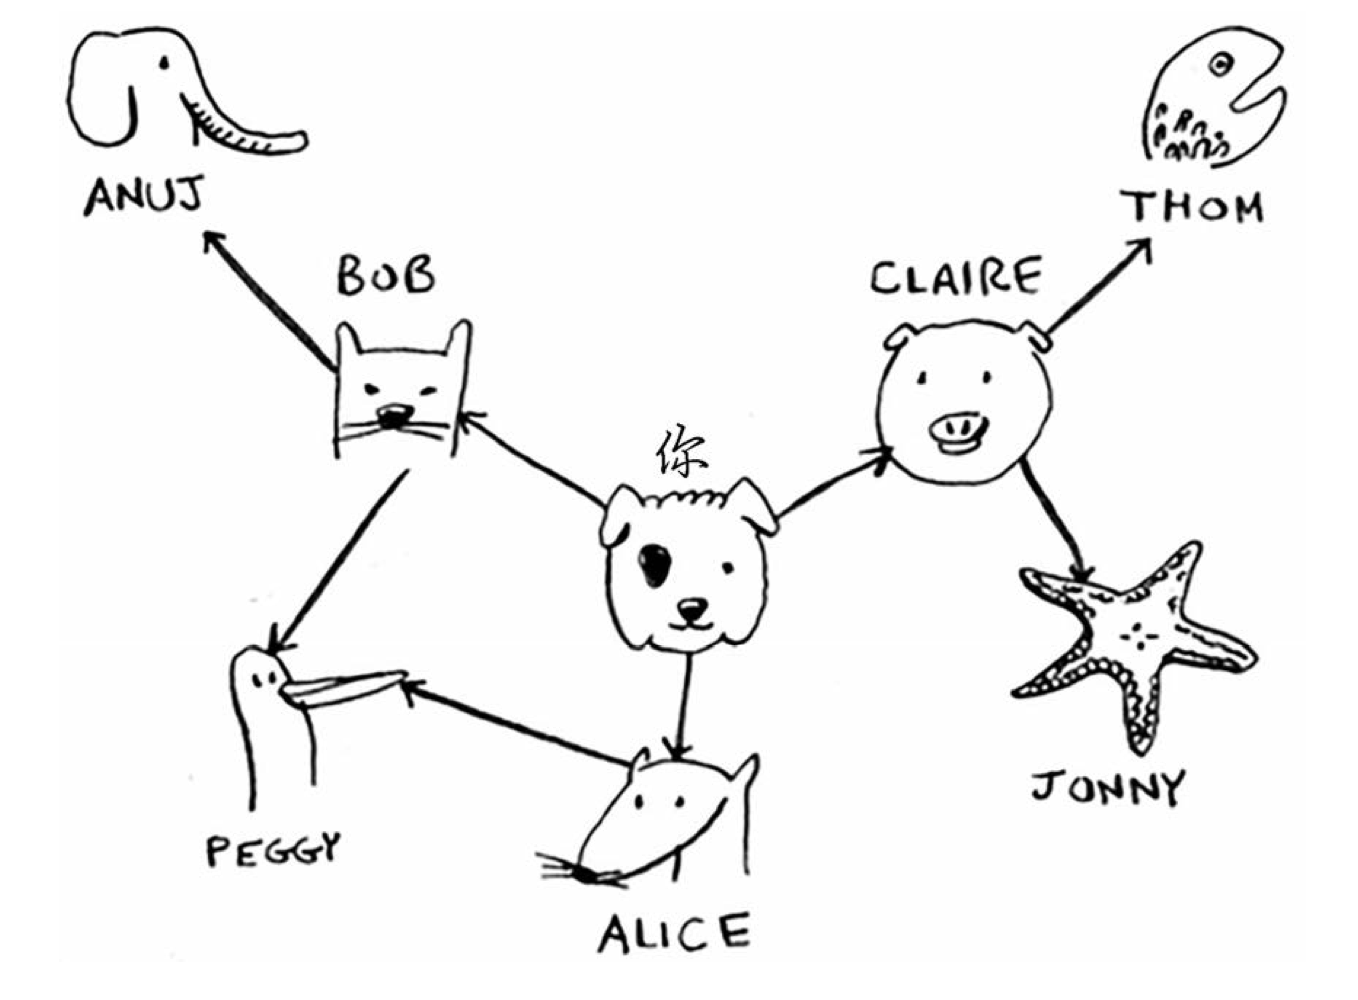 ANUJ
THOM
BOB
CLAIRE
你
PEGGY
JONNY
ALICE